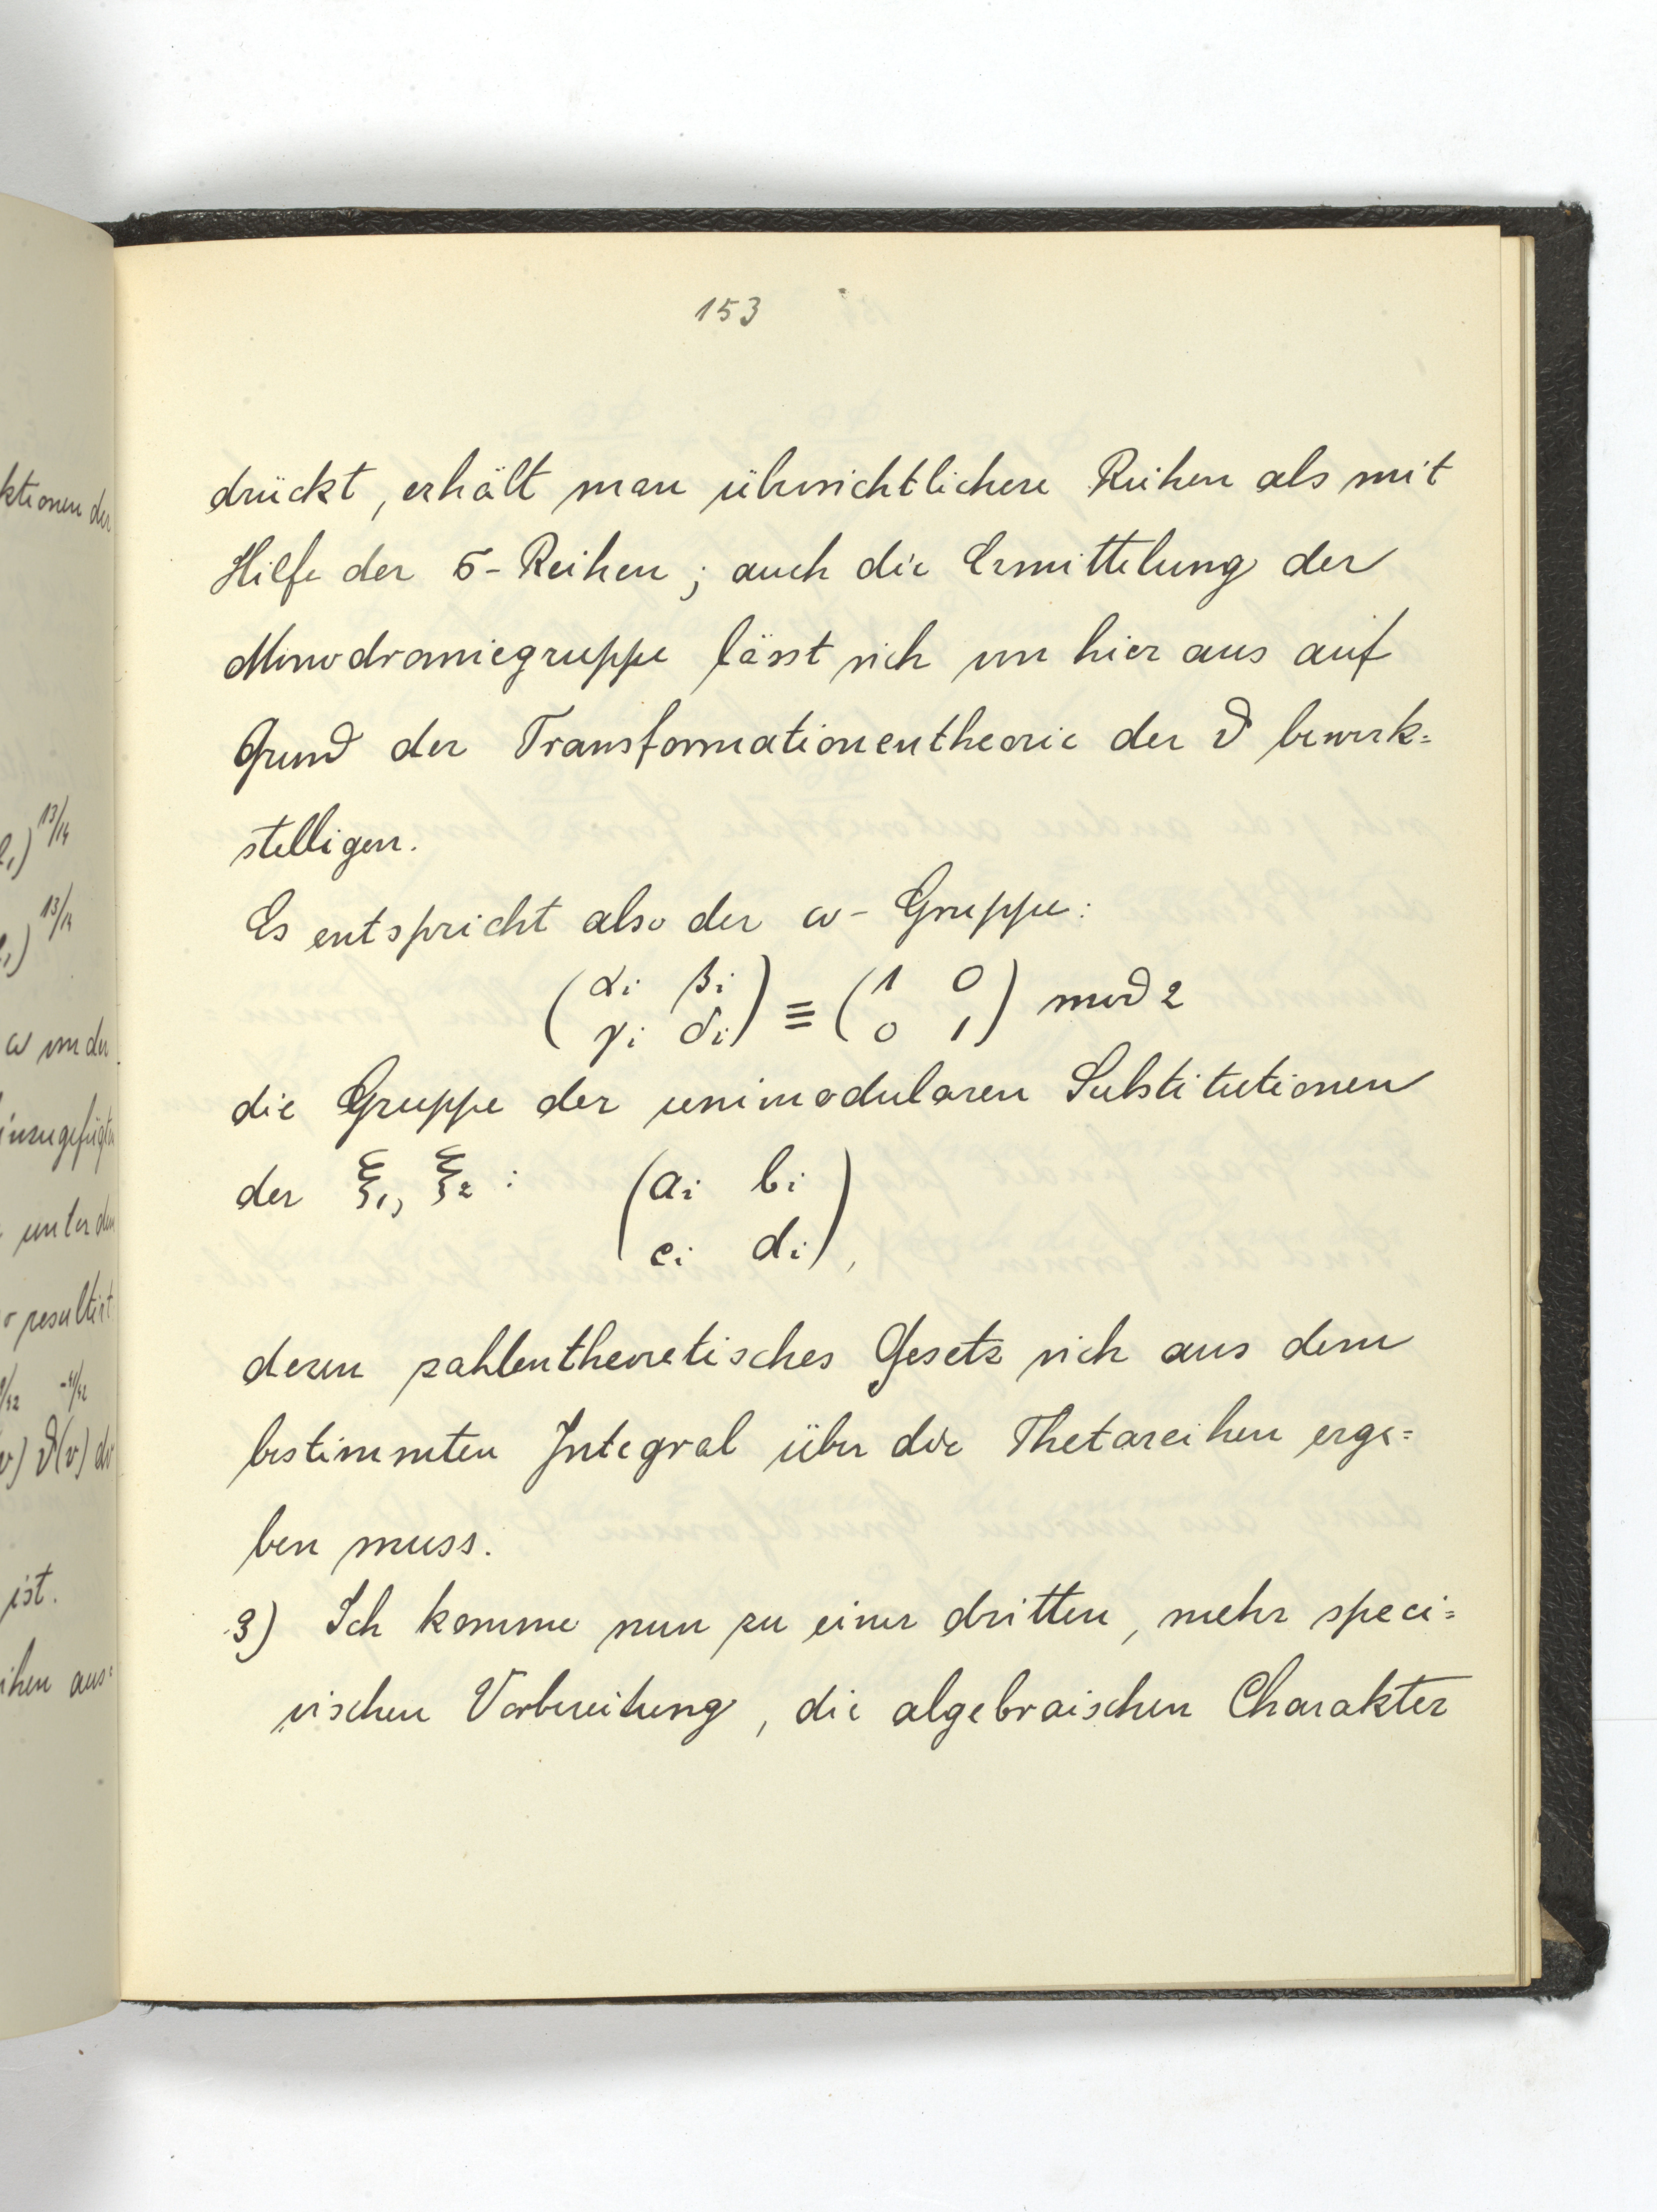 153
drückt, erhält man übersichtlichere Reihen als mit
Hilfe der σ-Reihen; auch die Ermittelung der
Monodromiegruppe lässt sich von hier aus auf
Grund der Transformationentheorie der ϑ bewerk=
stelligen.
Es entspricht also der ω-Gruppe:
(αi βi
γi δi) ≡ (1 0
0 1) mod 2
die Gruppe der unimodularen Substitutionen
der ξ1, ξ2 : (ai bi
ci di),
deren zahlentheoretisches Gesetz sich aus dem
bestimmten Integral über die Thetareihen erge=
ben muss.
3) Ich komme nun zu einer dritten, mehr speci=
fischen Vorbereitung, die algebraischen Charakter
ktionen der
13/14
13/14
ω von der
hinzugefügten
unter dem
resultirt
ϑ(v) dv
ist.
ihen aus=